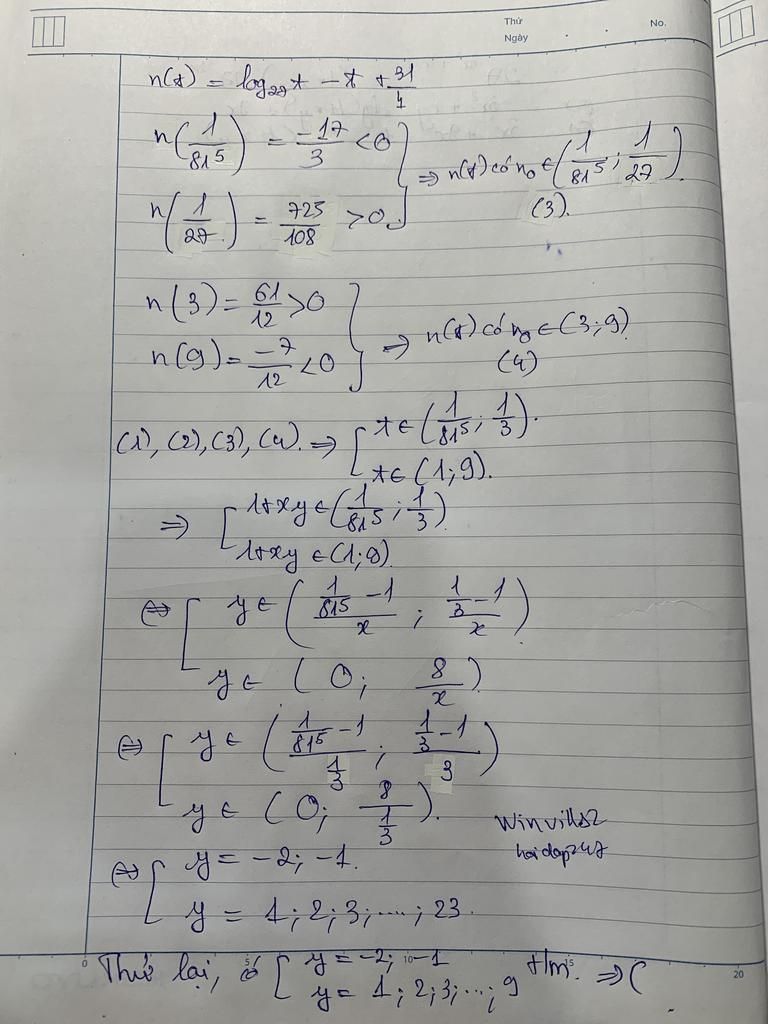 Thứ
No.
Ngày
n(t) = log₂₇t - t + 31/4
n(1/81⁵) = -17/3 < 0
n(1/27) = 725/108 > 0
⇒ n(t) có n₀ ∈ (1/81⁵ ; 1/27)
(3).
n(3) = 61/12 > 0
n(9) = -7/12 < 0
⇒ n(t) có n₀ ∈ (3; 9)
(4)
(1), (2), (3), (4). ⇒ [ t ∈ (1/81⁵ ; 1/3).
t ∈ (1; 9).
⇒ [ 1+xy ∈ (1/81⁵ ; 1/3)
1+xy ∈ (1; 9)
⇔ [ y ∈ ((1/81⁵ - 1)/x ; (1/3 - 1)/x)
y ∈ (0; 8/x)
⇔ [ y ∈ ((1/81⁵ - 1)/(1/3) ; (1/3 - 1)/3)
y ∈ (0; 8/(1/3)).
Winvills2
hoidap247
⇔ [ y = -2; -1.
y = 1; 2; 3; ...; 23.
0 5 10 15 20
Thử lại, có [ y = -2; -1
y = 1; 2; 3; ...; 9
t/m. ⇒ (